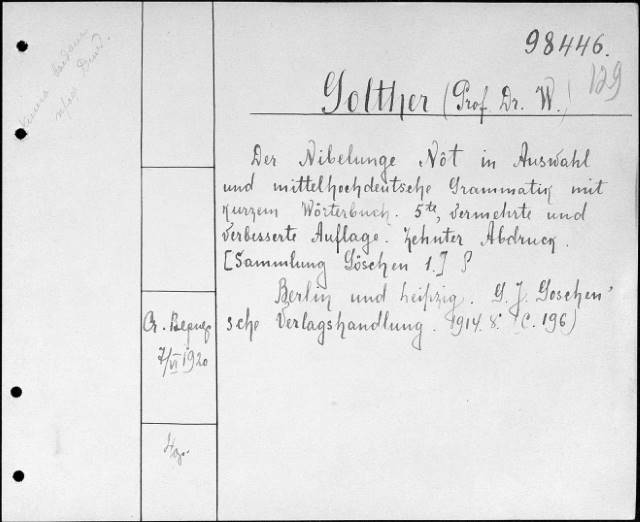 98446.
129
Golther (Prof. Dr. W.)
Der Nibelunge Nôt in Auswahl
und mittelhochdeutsche Grammatik mit
kurzem Wörterbuch. 5te, vermehrte und
verbesserte Auflage. Zehnter Abdruck.
[Sammlung Göschen 1.]
Berlin und Leipzig. G. J. Goschen'
sche Verlagshandlung. 1914. 8. (C. 196)
7/VI 1920